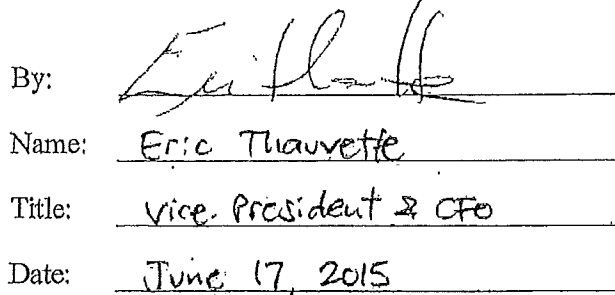 By: Eric Thauvette
Name: Eric Thauvette
Title: Vice. President & CFO
Date: June 17, 2015